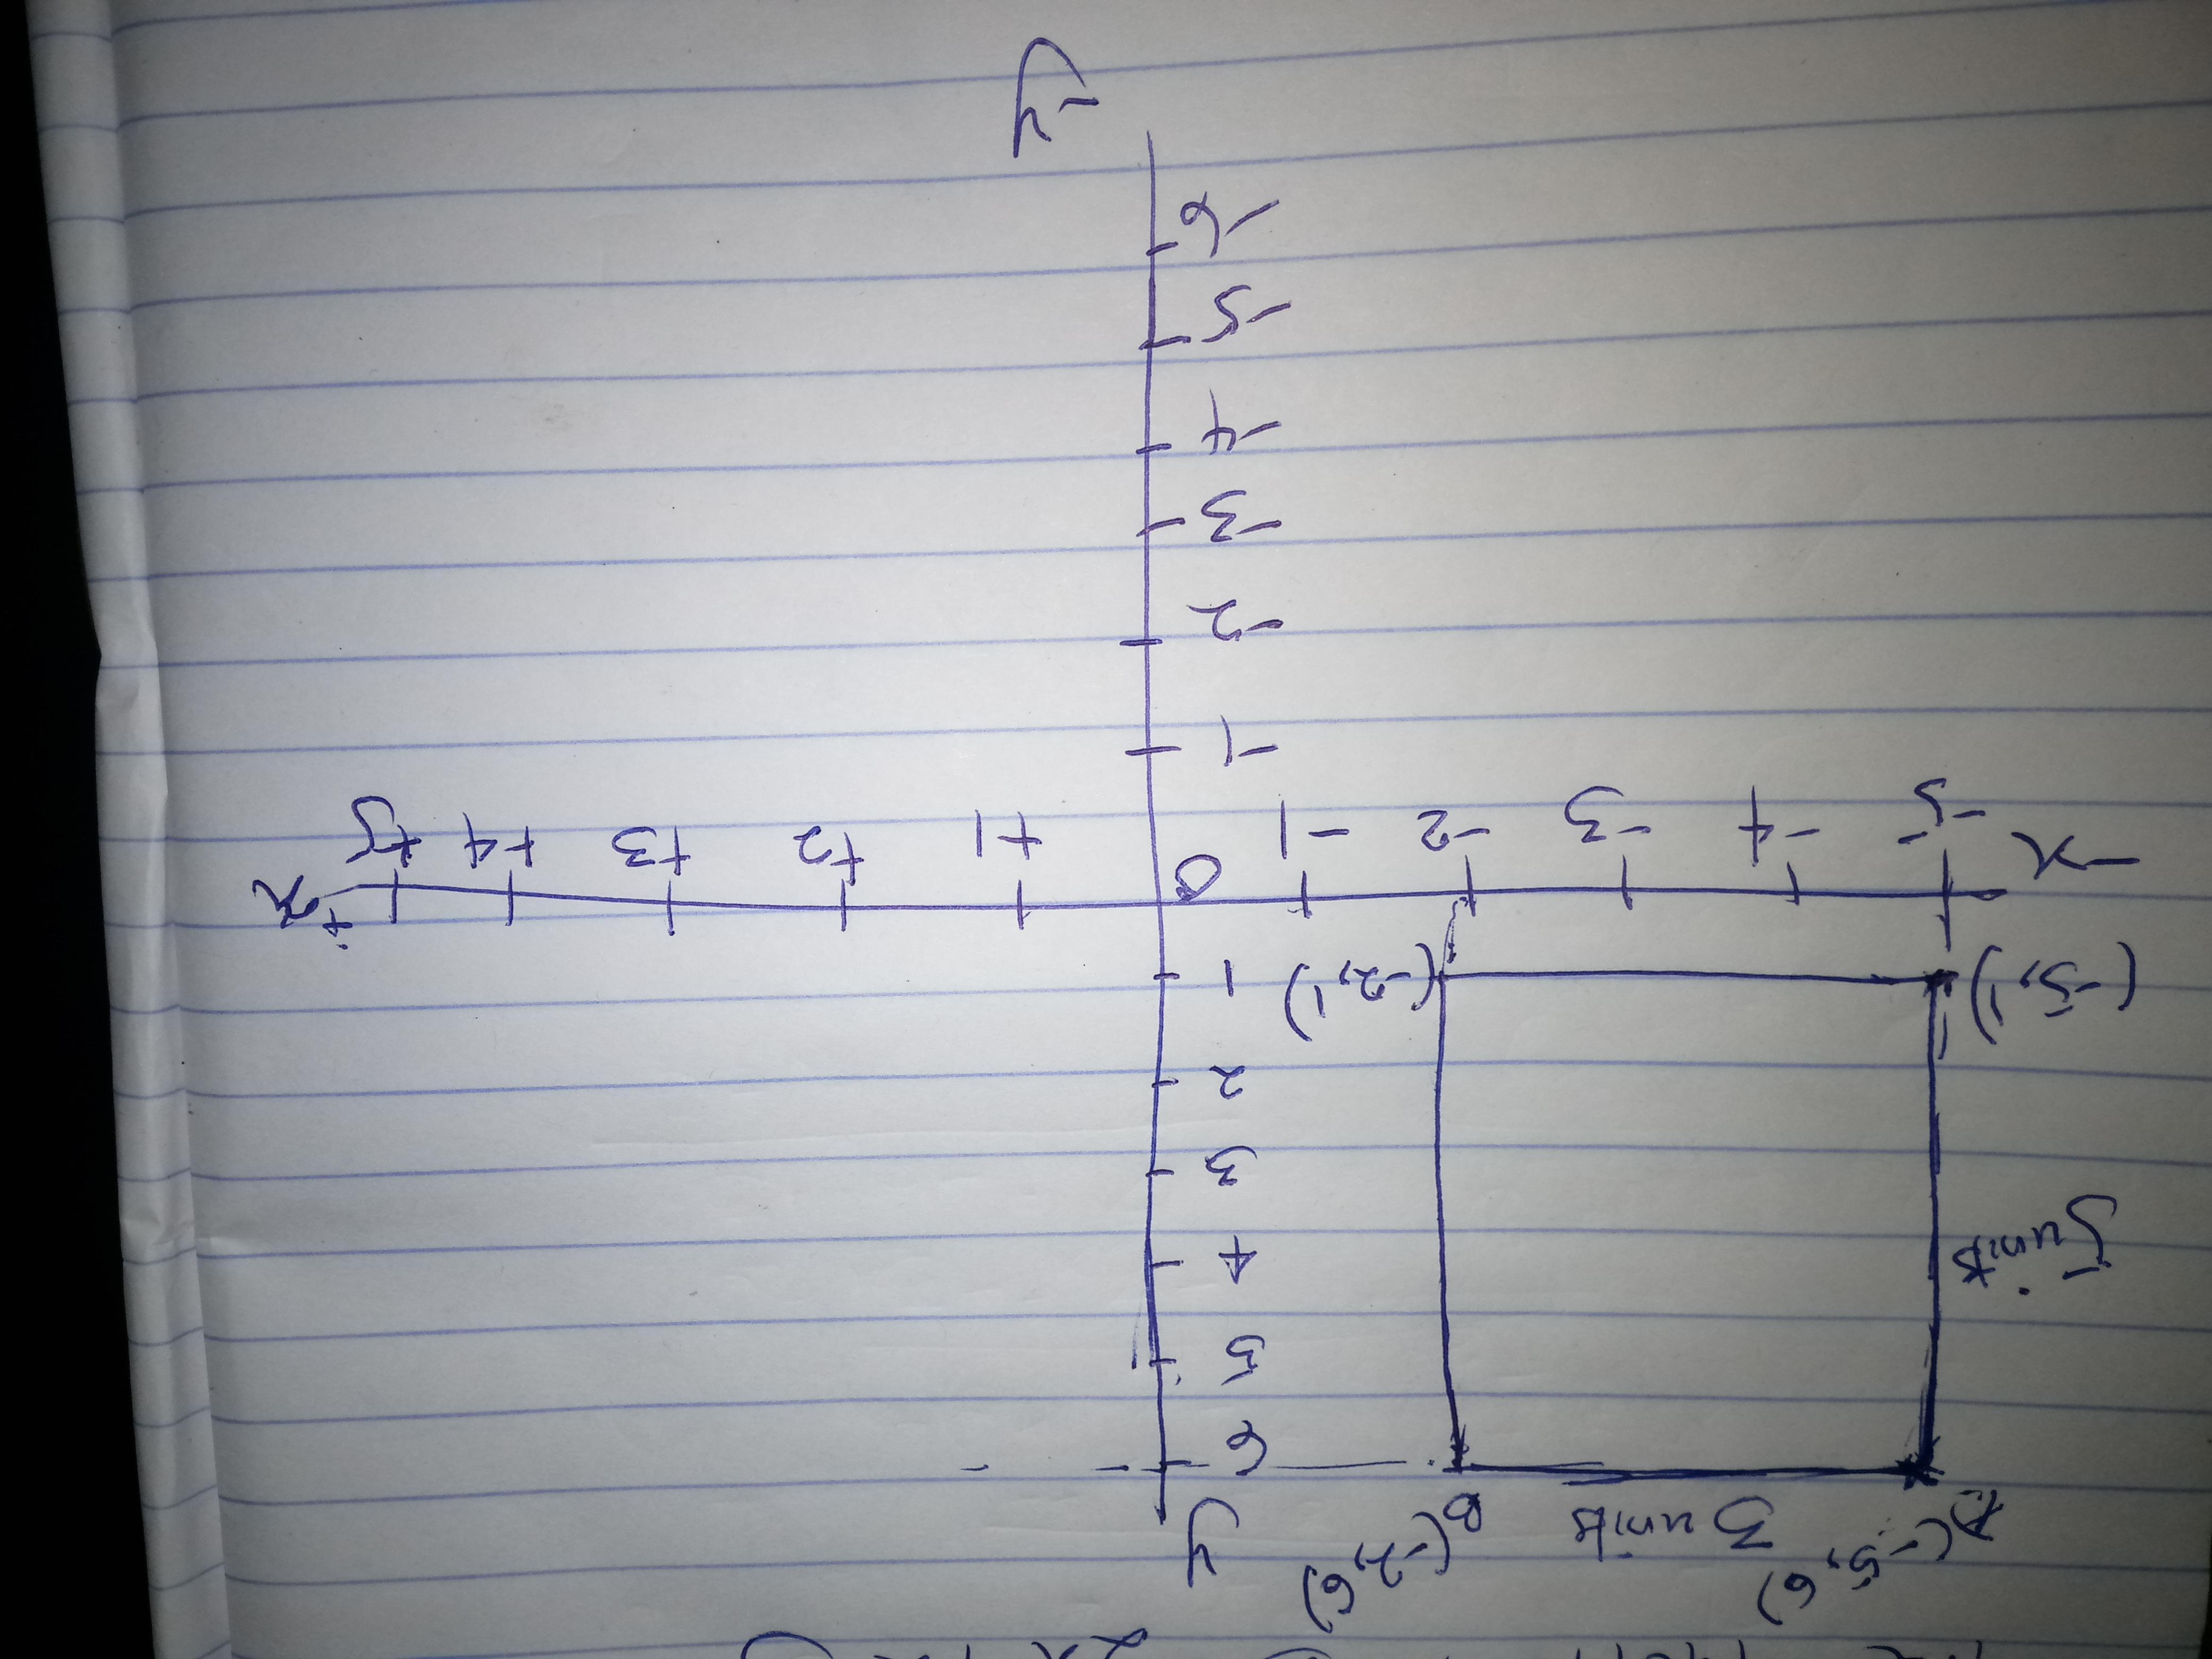 y
A(-5, 6) 3 units B(-2, 6)
6
5
5 units
4
3
2
(-5, 1) (-2, 1) 1
-x -5 -4 -3 -2 -1 0 +1 +2 +3 +4 +5 +x
-1
-2
-3
-4
-5
-6
-y